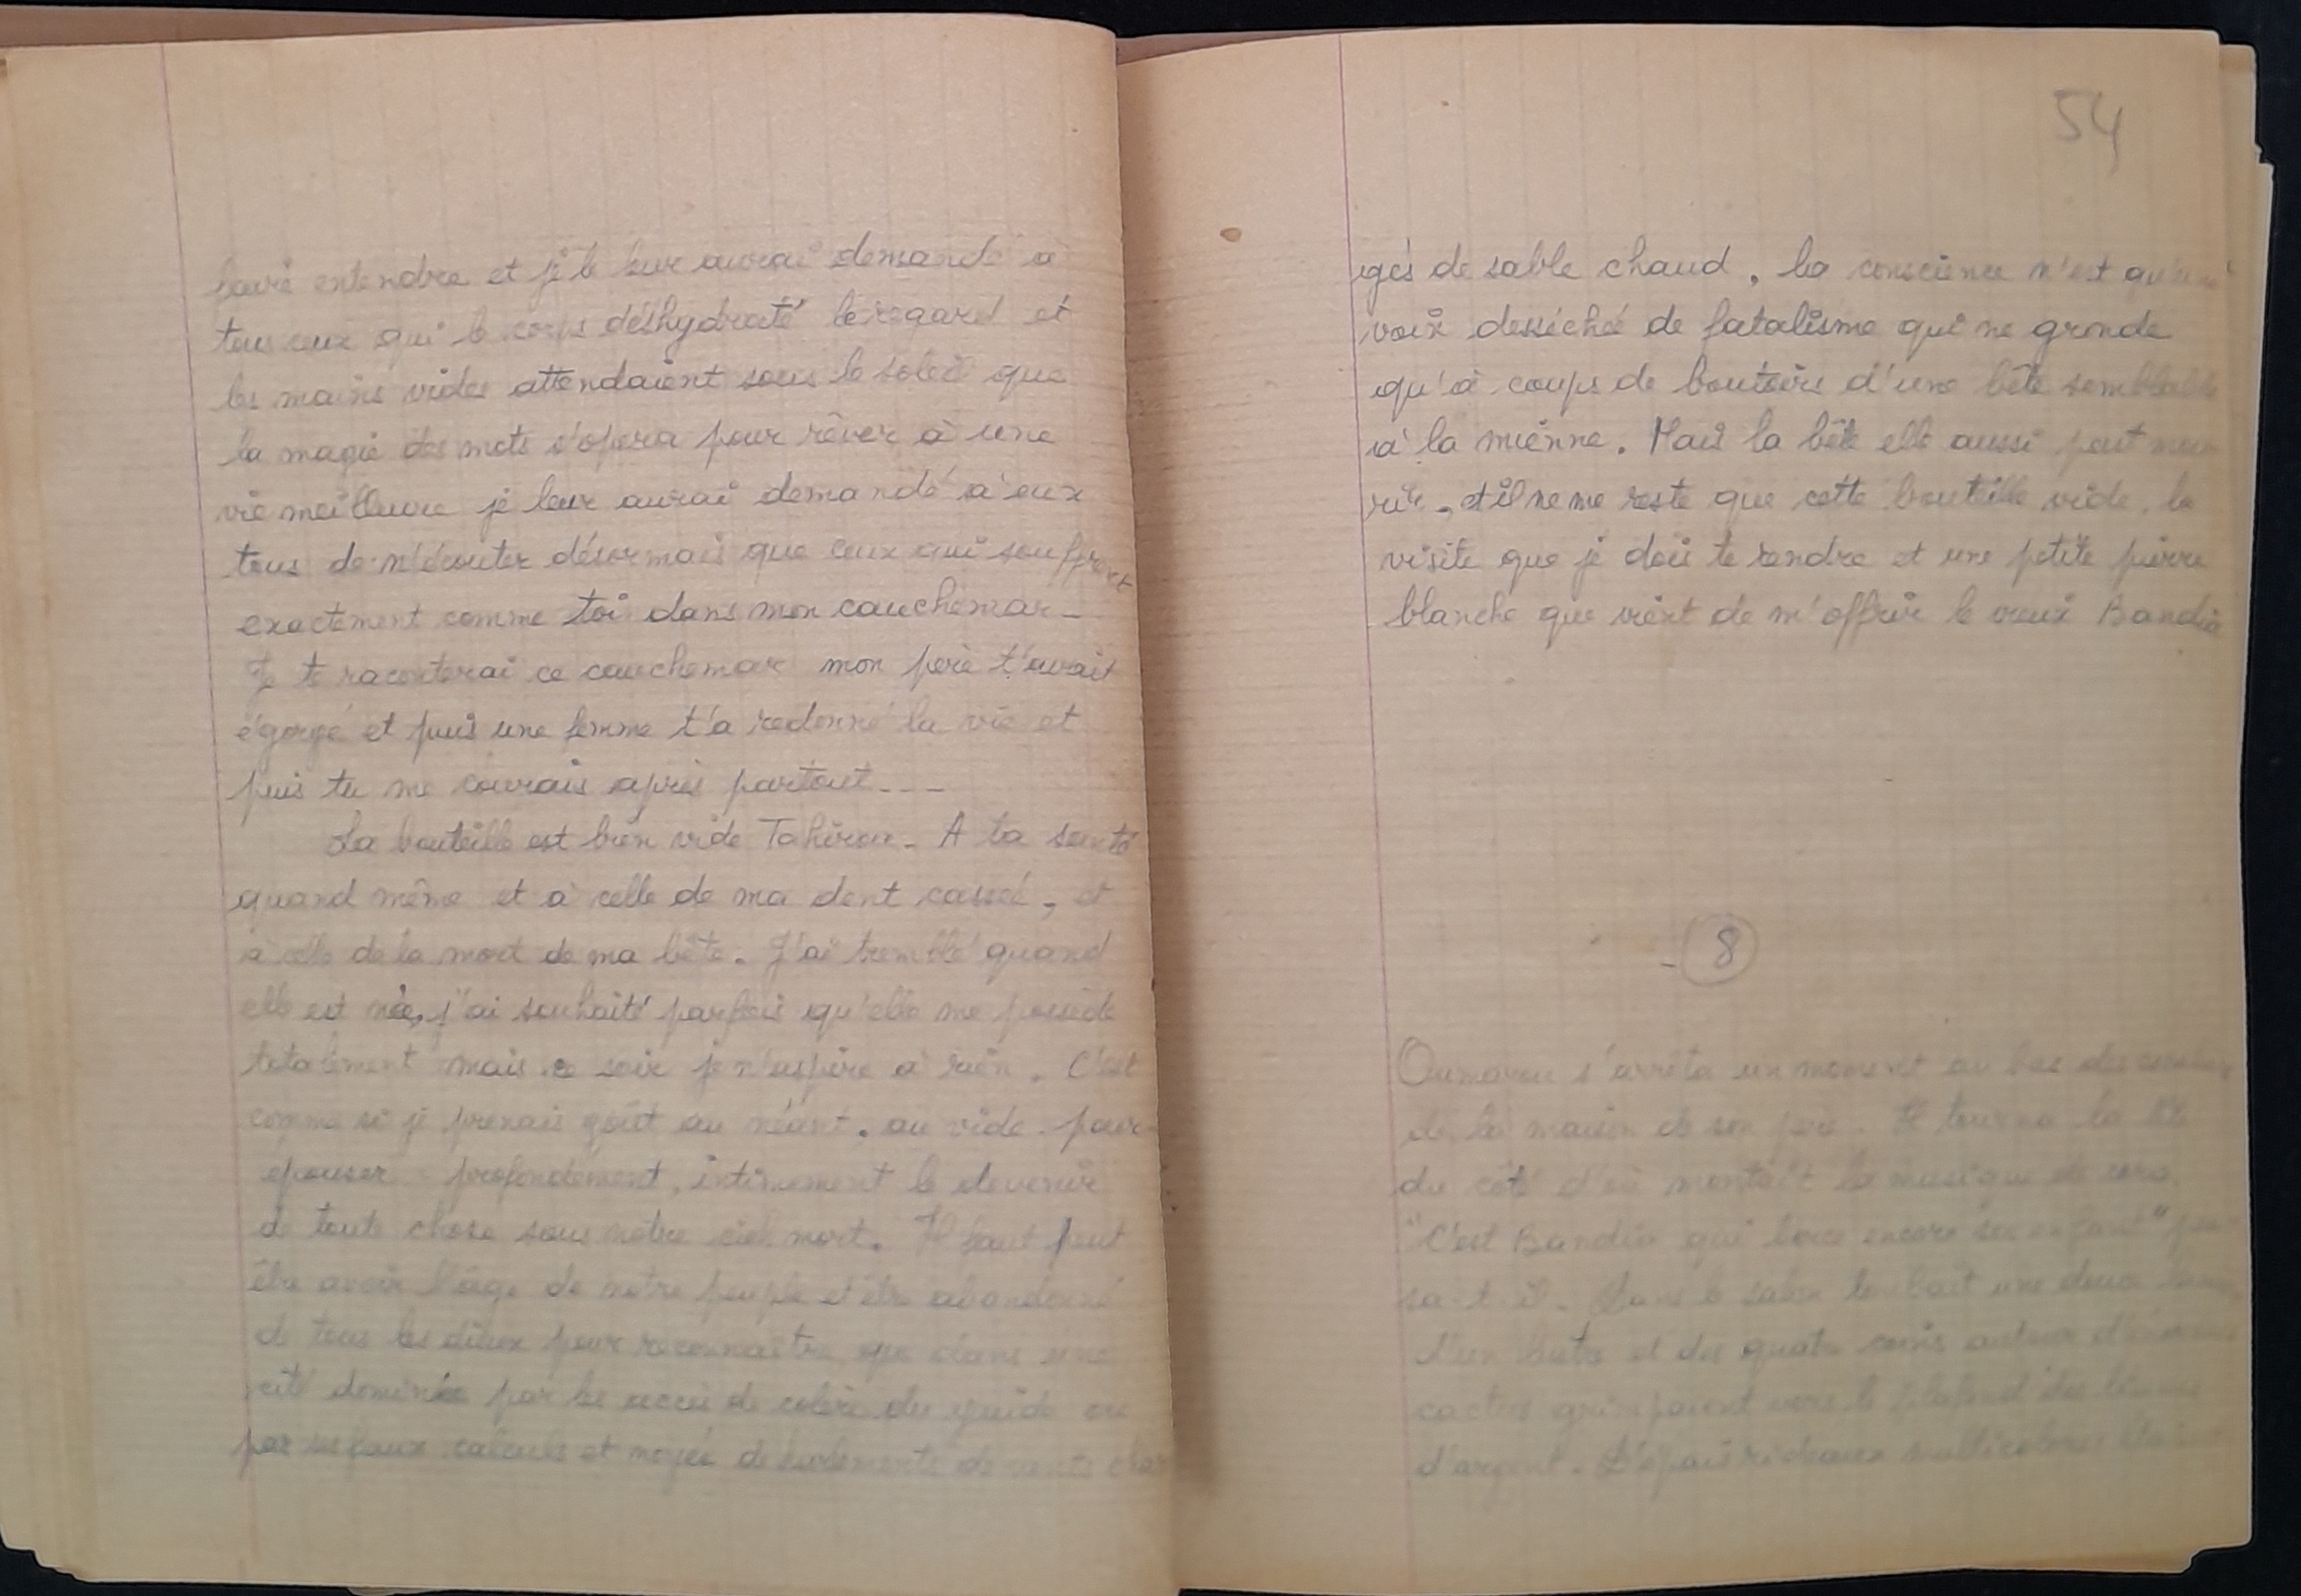 faire entendre et je le leur aurai demandé à
tous ceux qui le corps déshydraté le regard et
les mains vides attendaient sous le soleil que
la magie des mots s'opera pour rêver à une
vie meilleure je leur aurai demandé à eux
tous de n'écouter désormais que ceux qui souffrent
exactement comme toi dans mon cauchemar -
Je te raconterai ce cauchemar mon père t'avait
égorgé et puis une femme t'a redonné la vie et
puis tu me courais après partout ---
La bouteille est bien vide Tahirou - A ta santé
quand même et à celle de ma dent cassée, et
à celle de la mort de ma bête. J'ai tremblé quand
elle est née, j'ai souhaité parfois qu'elle me possède
totalement mais ce soir je n'aspire à rien. C'est
comme si je prenais goût au néant, au vide pour
épouser profondément, intimement le devenir
de toute chose sous notre ciel mort. Il faut peut
être avoir l'âge de notre peuple et être abandonné
de tous les dieux pour reconnaître que dans une
cité dominée par les accès de colère du guide ou
par ses faux calculs et noyée de de vents char
54
gés de sable chaud, la conscience n'est qu'une
voix desséchée de fatalisme qui ne gronde
qu'à coups de boutoirs d'une bête semblable
à la mienne. Mais la bête elle aussi peut mou
rir, et il ne me reste que cette bouteille vide, la
visite que je dois te rendre et une petite pierre
blanche que vient de m'offrir le vieux Bandia
- 8
Oumarou s'arrêta un moment au bas des escaliers
de la maison de son père. Il tourna la tête
du côté d'où montait la musique de cora.
"C'est Bandia qui berce encore ses enfants" pen
sa-t-il. Dans le salon tombait une douce
d'un lustre et des quatre coins autour
cactus grimpaient vers le plafond des
d'argent. D'épais rideaux multicolores étaient